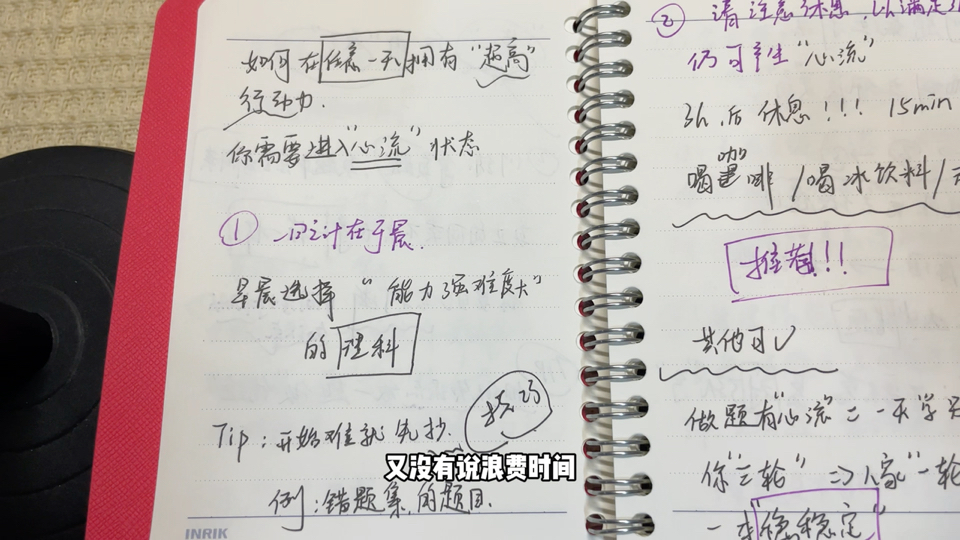 如何在任意一天拥有"超高"
行动力.
你需要进入"心流"状态
① 一日之计在于晨.
早晨选择"能力强难度大"
的理科
Tip：开始难就先抄.
技巧
例：错题集的题目.
INRIK
② 请注意休息,以满足
仍可产生"心流"
3h后休息!!! 15min
喝咖啡/喝冰饮料/
推荐!!
其他可✓
做题有"心流"= 一天学
你"三轮" => 人家"一轮
一来稳稳定
又没有说浪费时间